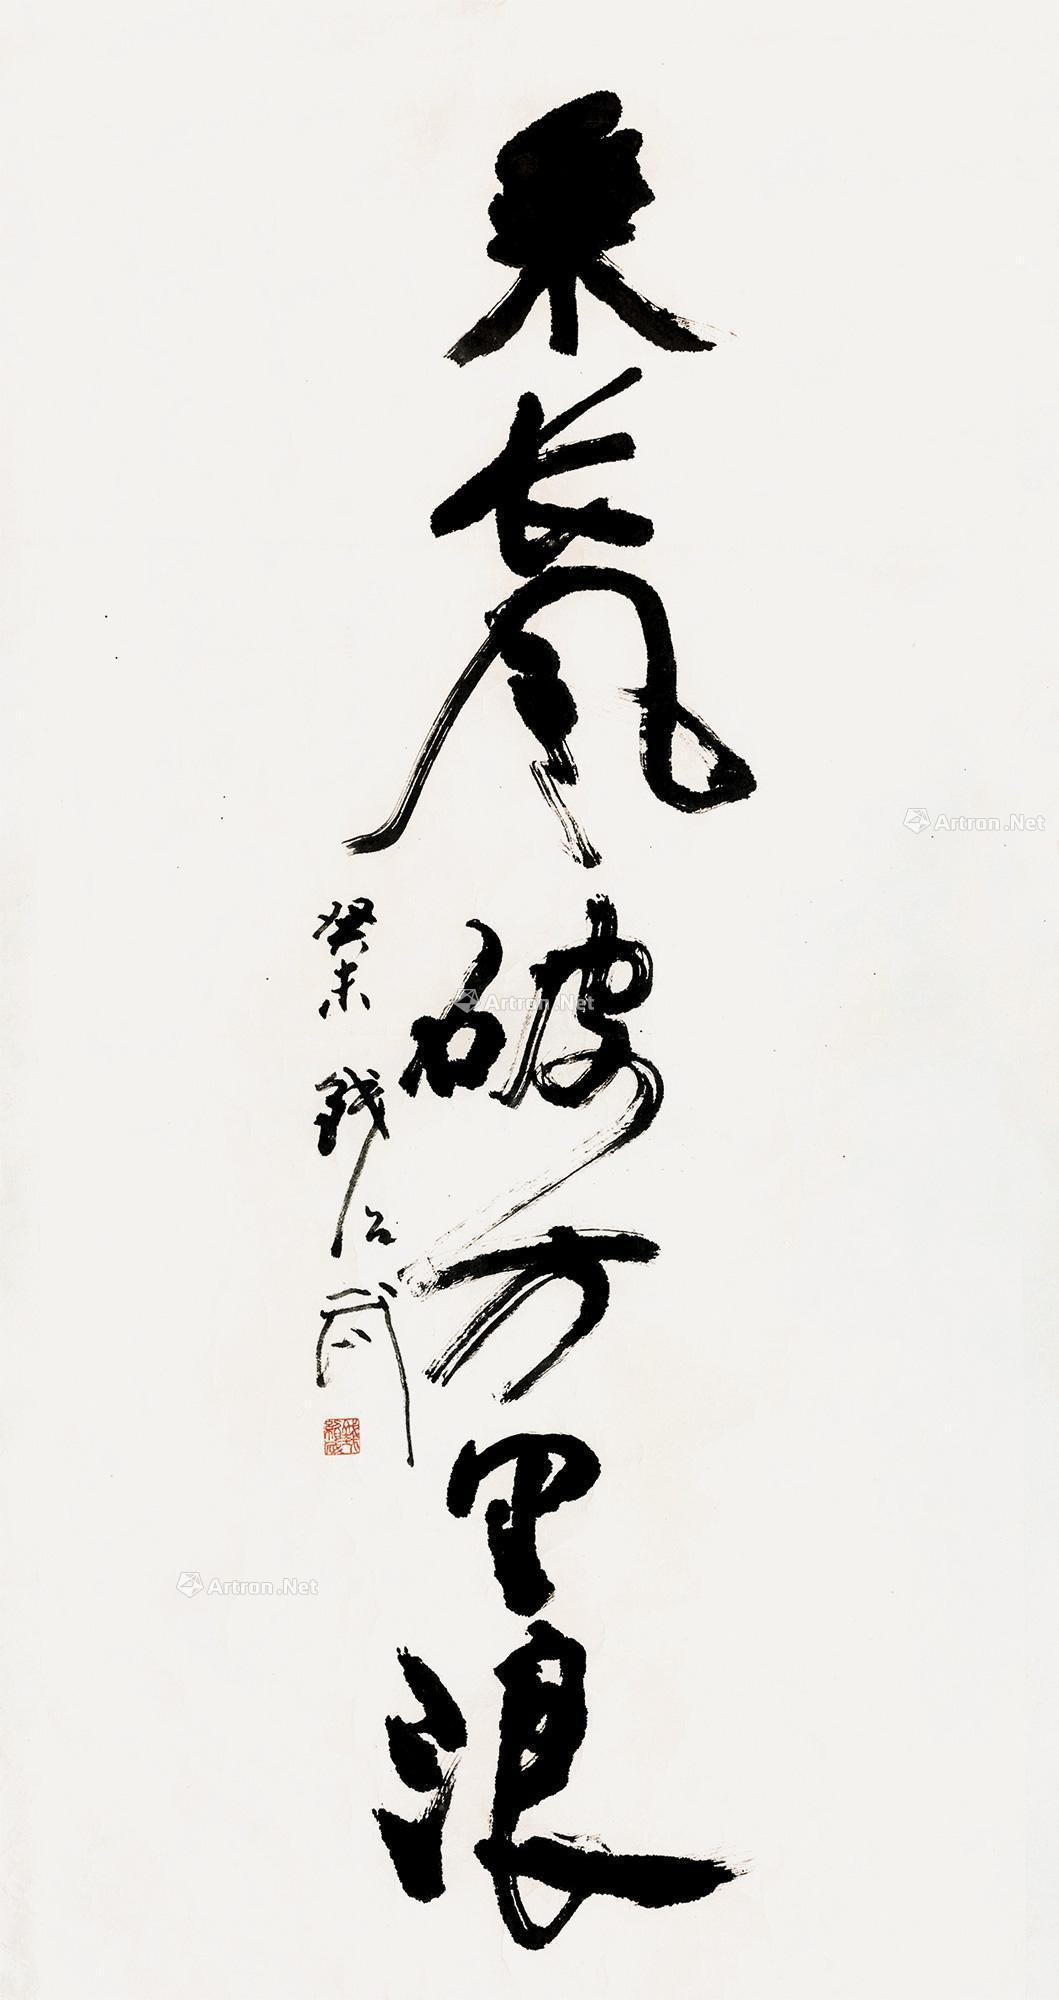 乘长风破万里浪
癸未 钱绍武
Artron.Net
Artron.Net
Artron.Net